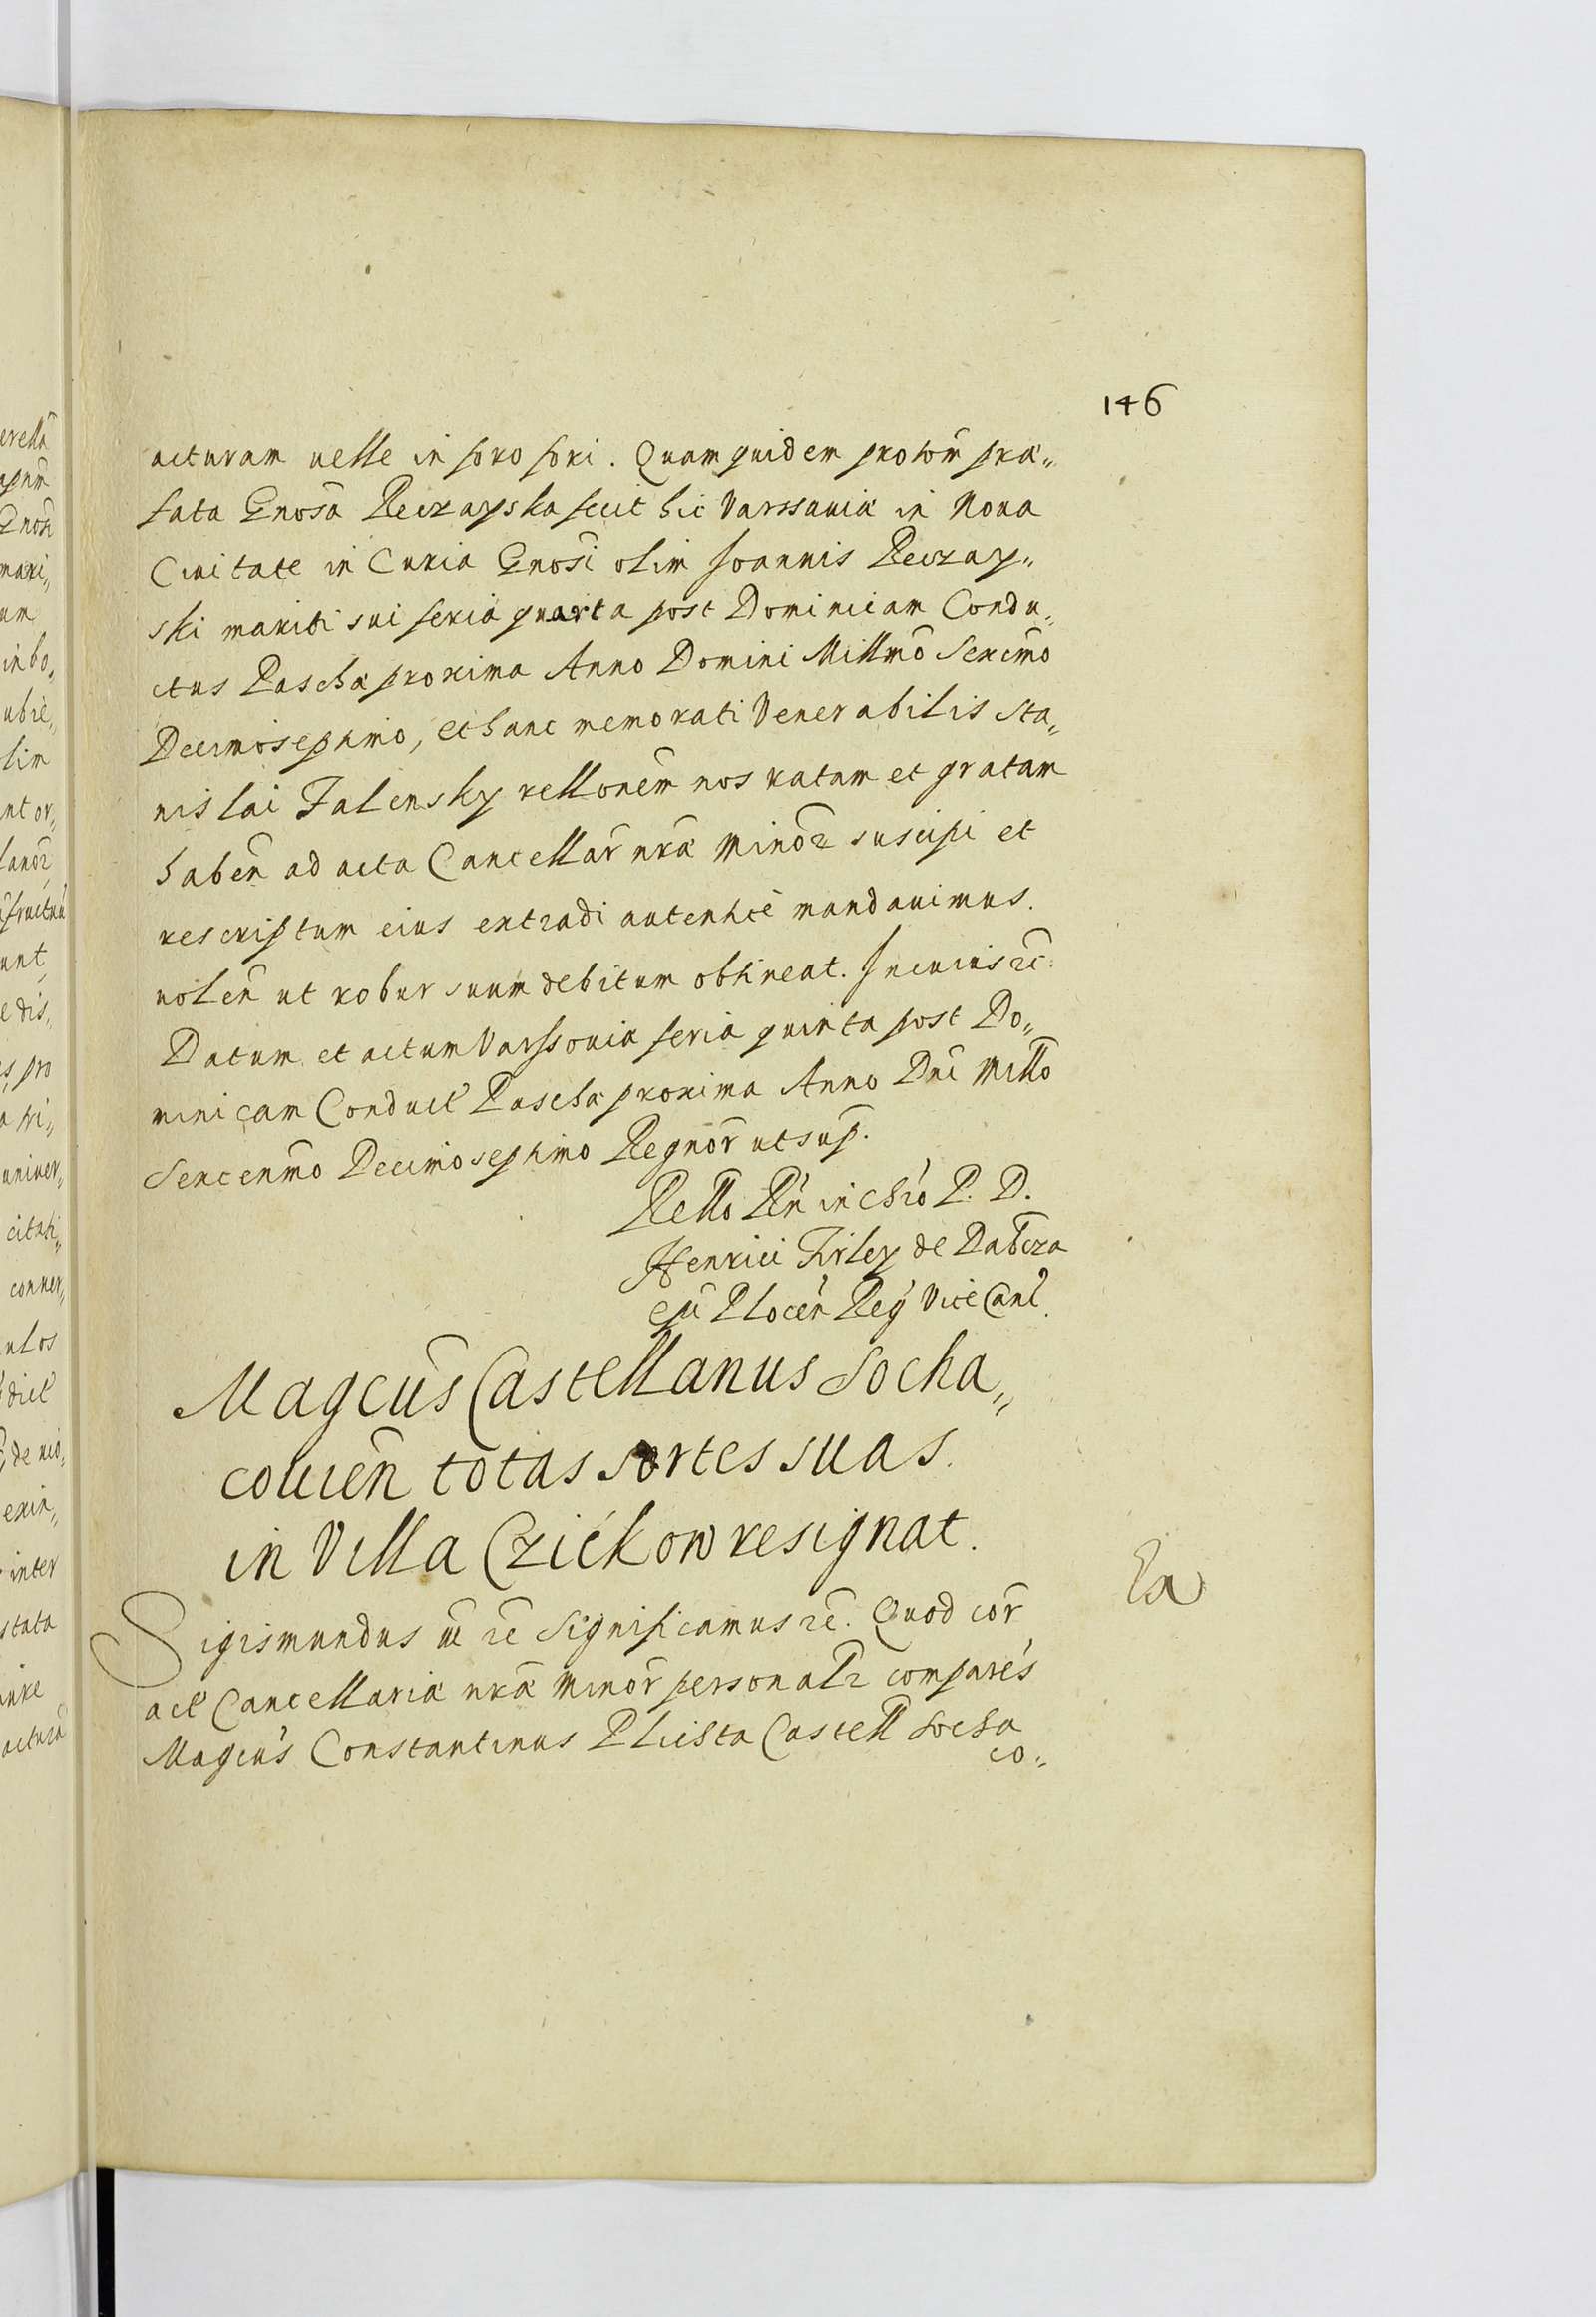 146
acturam uelle in foro fori. Quam quidem proton̄ præ„
fata Gnosa Reczayska fecit hic Varssauiæ in Noua
Ciuitate in Curia Gnosi olim Joannis Reczay„
ski mariti sui feria quarta post Dominicam Condu„
ctus Paschæ proxima Anno Domini Millmo Sexcmo
Decimoseptimo, et hanc memorati Venerabilis Sta„
nislai Falensky rellonem nos ratam et gratam
haben̄ ad acta Cancellar̄ nræ Minor suscipi et
rescriptum eius extradi autentice mandauimus.
uolen̄ ut robur suum debitum obtineat. In cuius rei:
Datum et actum Varssouiæ feria quinta post Do„
minicam Conduct Paschæ proxima Anno Dni Millo
Sexcenmo Decimoseptimo Regnor̄ ut sup.
Rello Rn in Chro P. D.
Henrici Firley de Dabrza
epi Plocen̄ Reg Vice Canl.
Magcus Castellanus Socha„
couien̄ totas sortes suas.
in Villa Czickow resignat.
Sigismundus etc Significamus etc. Quod cor̄
act Cancellariæ nræ minor̄ personalr compares
Magcus Constantinus Plichta Castell Socha
co„